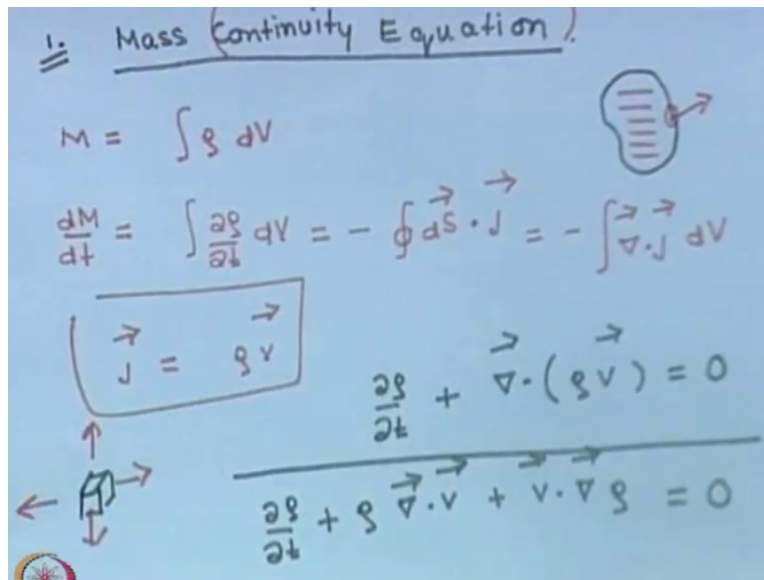 1. Mass (Continuity Equation)
M = ∫ ρ dV
dM/dt = ∫ ∂ρ/∂t dV = - ∮ d\vec{S} · \vec{J} = - ∫ \vec{∇} · \vec{J} dV
\vec{J} = ρ \vec{v}
∂ρ/∂t + \vec{∇} · (ρ \vec{v}) = 0
∂ρ/∂t + ρ \vec{∇} · \vec{v} + \vec{v} · \vec{∇} ρ = 0